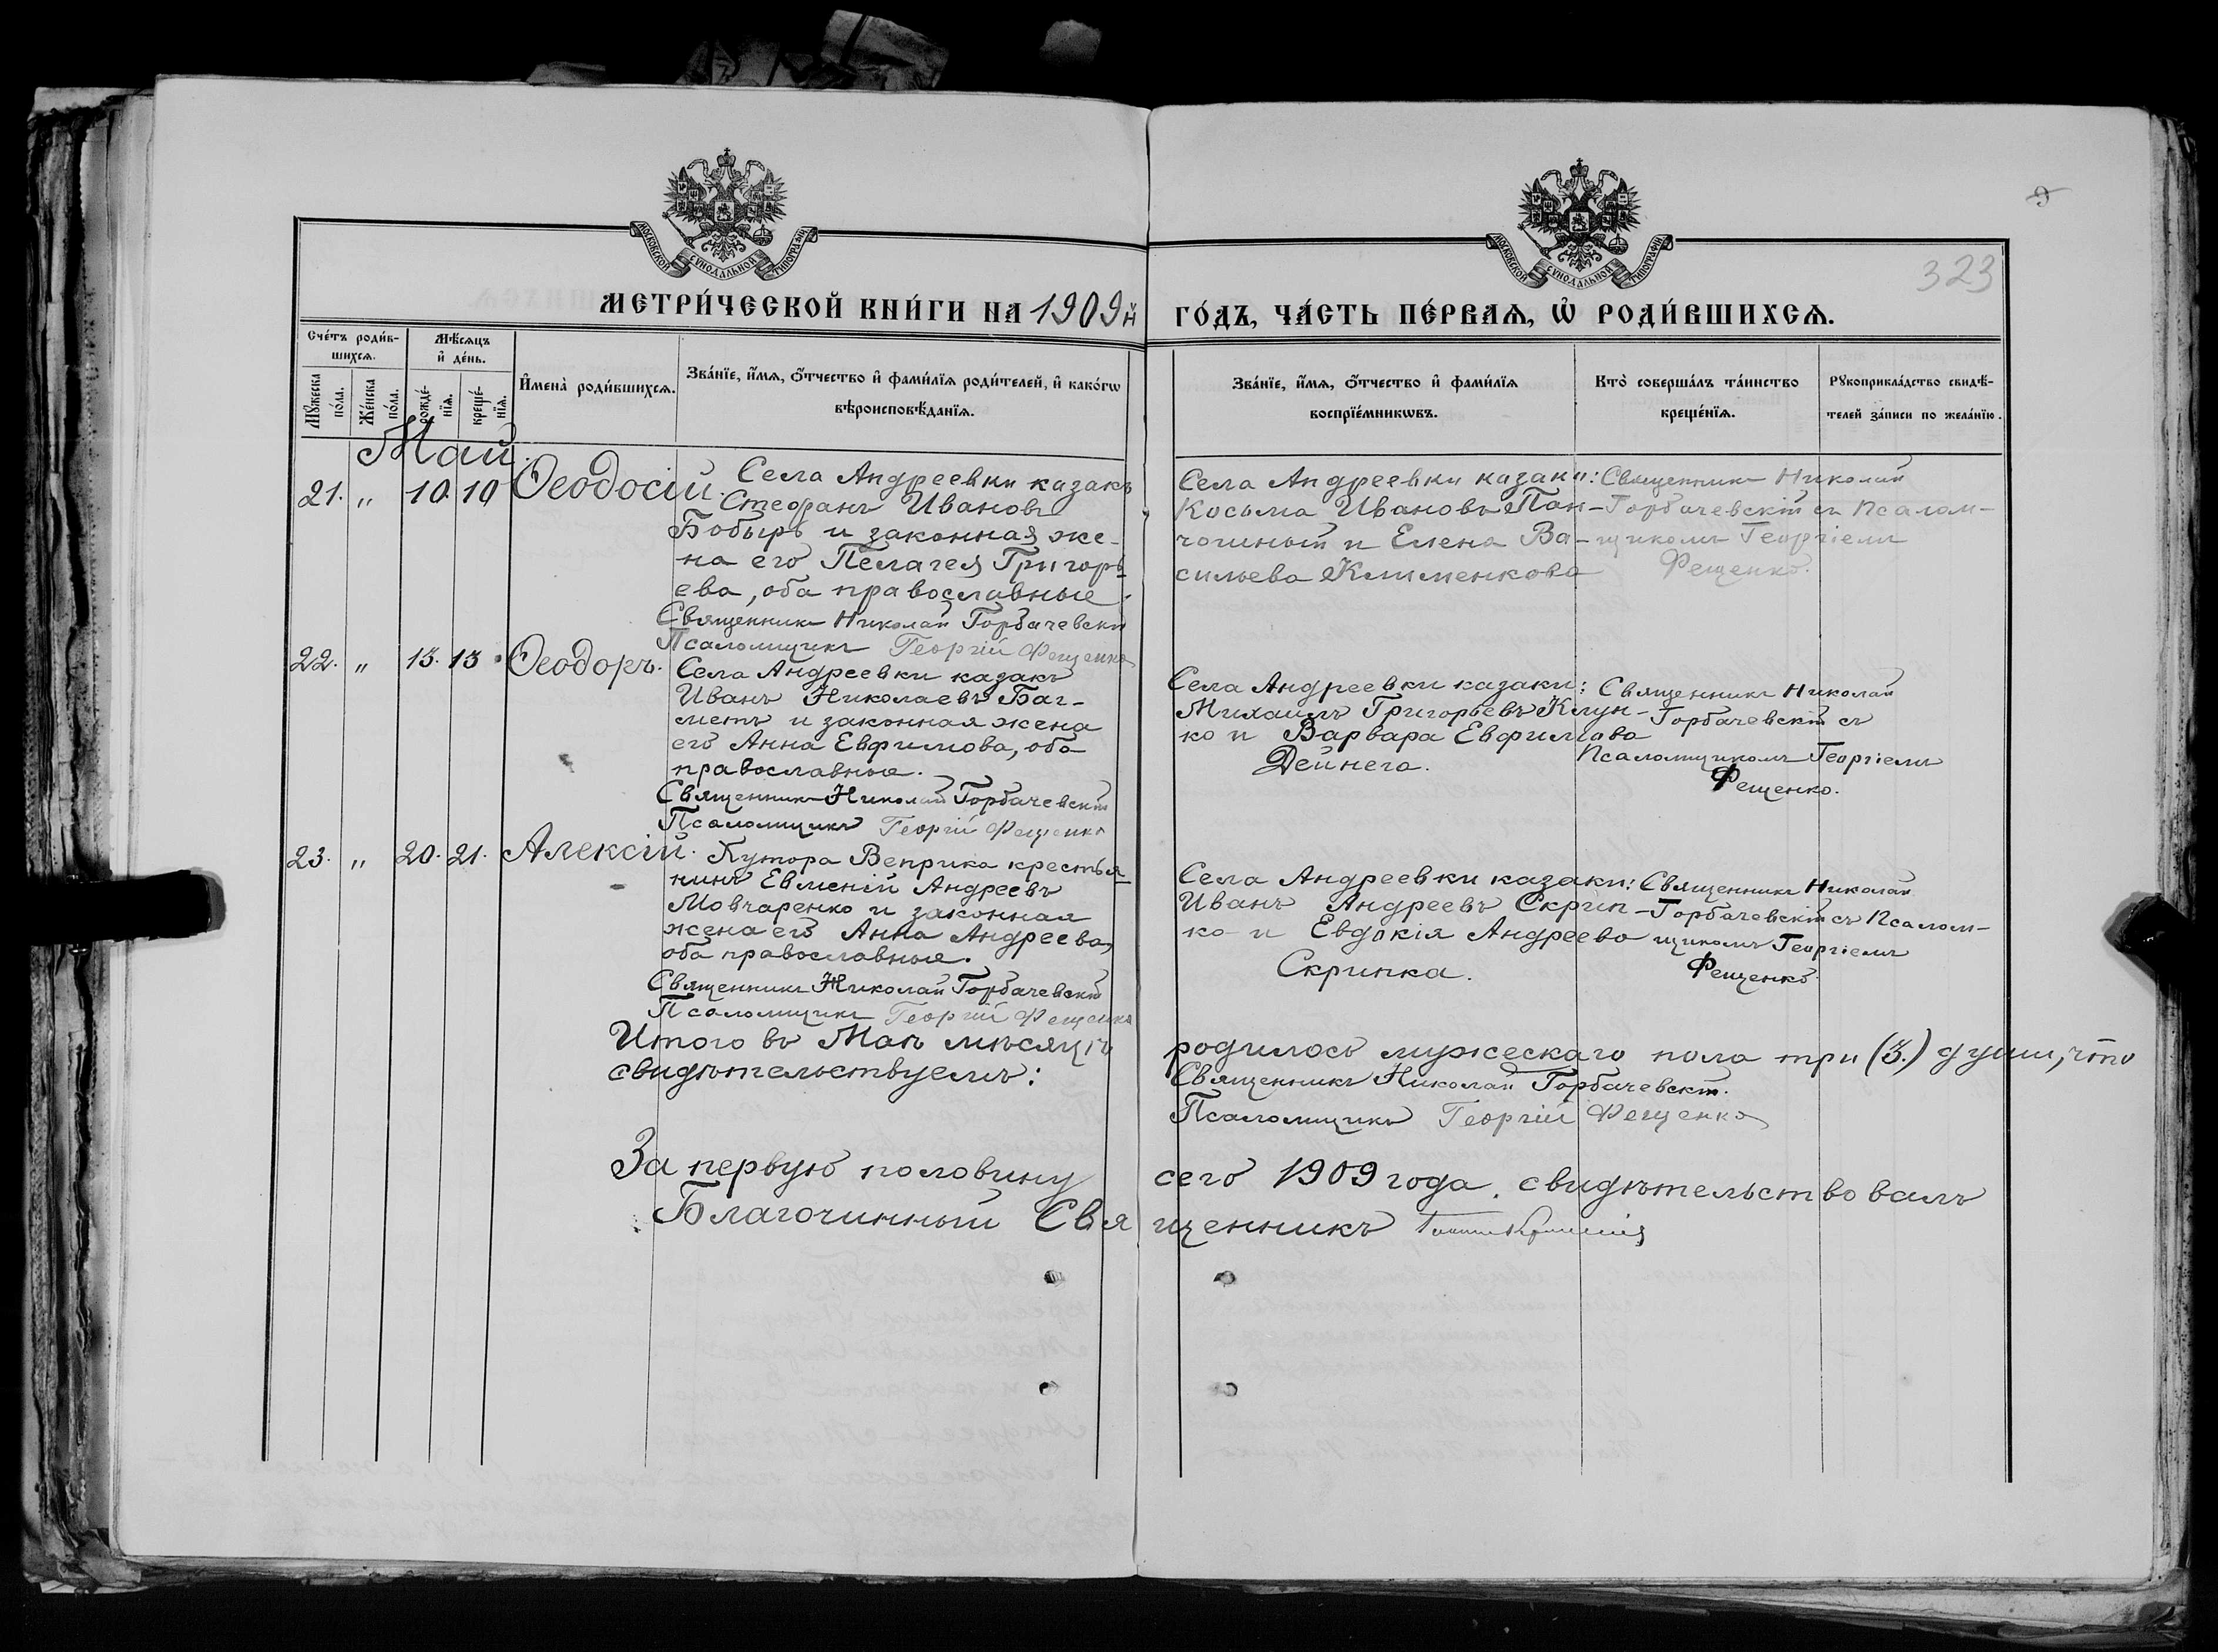 МОСКОВСКОЙ СѴНОДАЛЬНОЙ ТИПОГРАФІИ
МОСКОВСКОЙ СѴНОДАЛЬНОЙ ТИПОГРАФІИ
323
МЕТРИ́ЧЕСКОЙ КНИ́ГИ НА 1909й ГО́ДЪ, ЧА́СТЬ ПЕ́РВАѦ, Ѽ РОДИ́ВШИХСѦ.
Сче́тъ роди́в-
шихсѧ.
Мѣ́сѧцъ
и҆ де́нь.
Мꙋ́жеска
по́ла.
Же́нска
по́ла.
рожде́-
нїѧ.
креще́-
нїѧ.
И҆мена̀ роди́вшихсѧ.
Зва́нїе, и҆́мѧ, ѻ҆́тчество и҆ фами́лїѧ роди́телей, и҆ како́гѡ
вѣроисповѣ́данїѧ.
Зва́нїе, и҆́мѧ, ѻ҆́тчество и҆ фами́лїѧ
воспрїе́мникѡвъ.
Кто̀ соверша́лъ та́инство
креще́нїѧ.
Рꙋкоприкла́дство свидѣ́-
телей за́писи по жела́нїю.
Май.
21. „ 10. 10 Ѳеодосій.
Села Андреевки казакъ
Стефанъ Ивановъ
Бобырь и законная же-
на его Пелагея Григорь-
ева, оба православные.
Священникъ Николай Горбачевскій
Псаломщикъ Георгій Фещенко
Села Андреевки казаки:
Косьма Ивановъ Пан-
ченный и Елена Ва-
сильева Клименкова
Священникъ Николай
Горбачевскій съ Псалом-
щикомъ Георгіемъ
Фещенко.
22. „ 13. 13. Ѳеодоръ.
Села Андреевки казакъ
Иванъ Николаевъ Баг-
метъ и законная жена
его Анна Евфимова, оба
православные.
Священникъ Николай Горбачевскій
Псаломщикъ Георгій Фещенко
Села Андреевки казаки:
Михаилъ Григорьевъ Клун-
ко и Варвара Евфимова
Дейнега.
Священникъ Николай
Горбачевскій съ
Псаломщикомъ Георгіемъ
Фещенко.
23. „ 20. 21. Алексій.
Хутора Веприка крестья-
нинъ Евменій Андреевъ
Мовчаренко и законная
жена его Анна Андреева,
оба православные.
Священникъ Николай Горбачевскій
Псаломщикъ Георгій Фещенко
Села Андреевки казаки:
Иванъ Андреевъ Скрип-
ко и Евдокія Андреева
Скрипка.
Священникъ Николай
Горбачевскій съ Псалом-
щикомъ Георгіемъ
Фещенко.
Итого въ Маѣ мѣсяцѣ родилось мужескаго пола три (3.) души, что
свидѣтельствуемъ:
Священникъ Николай Горбачевскій.
Псаломщикъ Георгій Фещенко
За первую половину сего 1909 года, свидѣтельствовалъ
Благочинный Священникъ